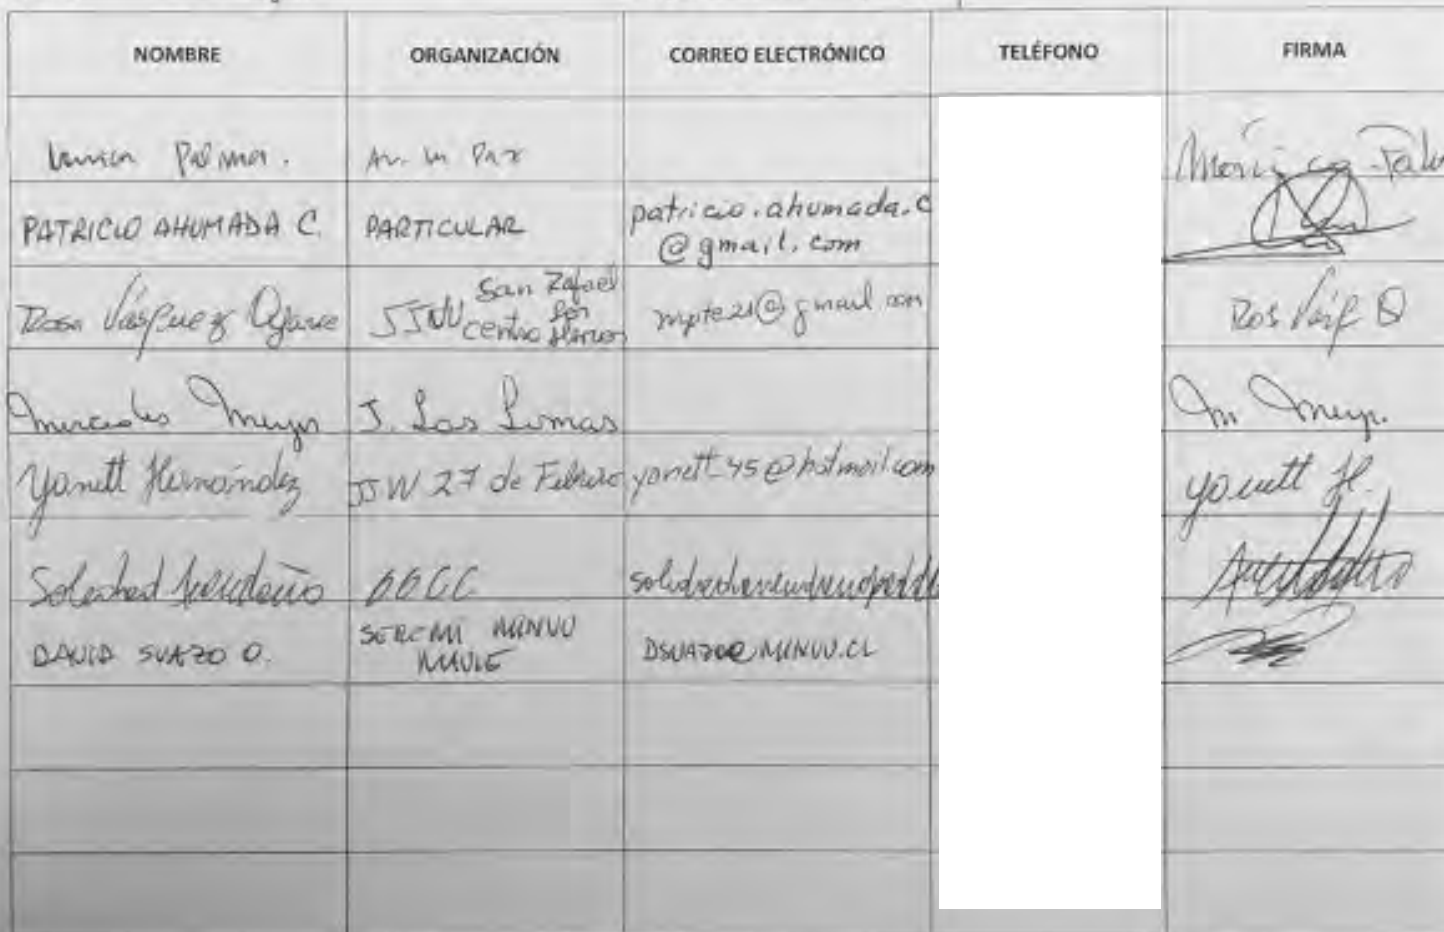 NOMBRE ORGANIZACIÓN CORREO ELECTRÓNICO TELÉFONO FIRMA
Palma. Av. La Paz Mónica Palm
PATRICIO AHUMADA C. PARTICULAR patricio.ahumada.c
@gmail.com
Rosa Vásquez JJVV San Rafael
Centro mpte21@gmail.com Ros
Mercedes J. Las Lomas M
Yanett Hernández JJVV 27 de Febrero yanett_45@hotmail.com Yanett H.
Soledad OOCC
DAVID SUAZO O. SEREMI MINVU
MAULE DSUAZO@MINVU.CL